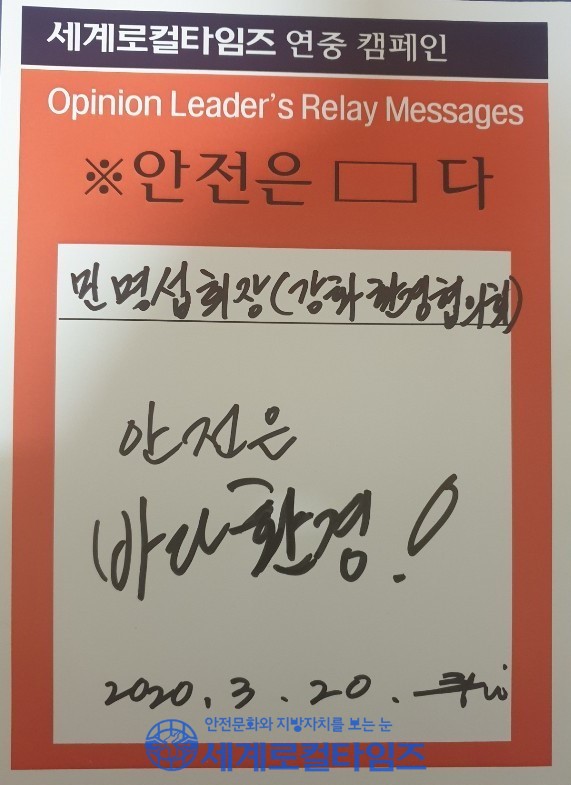 세계로컬타임즈 연중 캠페인
Opinion Leader's Relay Messages
※안전은 □ 다
민명섭회장(강화환경협의회)
안전은
바다환경!
2020.3.20.
안전문화와 지방자치를 보는 눈
세계로컬타임즈